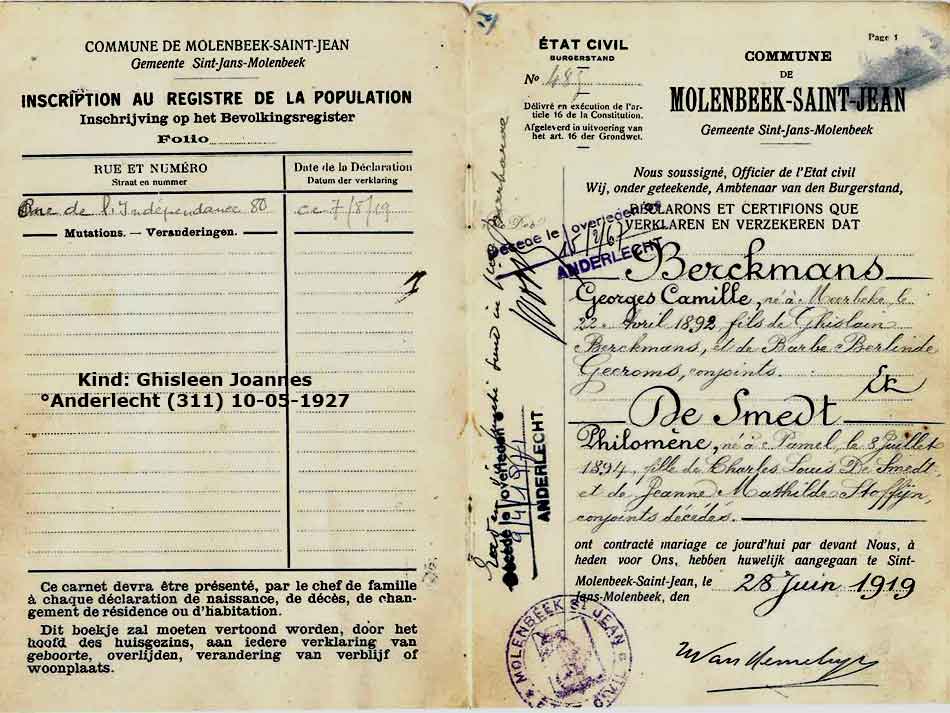 COMMUNE DE MOLENBEEK-SAINT-JEAN
Gemeente Sint-Jans-Molenbeek
INSCRIPTION AU REGISTRE DE LA POPULATION
Inschrijving op het Bevolkingsregister
Folio
RUE ET NUMÉRO
Straat en nummer
Date de la Déclaration
Datum der verklaring
Rue de l'Indépendance 80
ce 7/8/19
Mutations. — Veranderingen.
Kind: Ghisleen Joannes
°Anderlecht (311) 10-05-1927
Ce carnet devra être présenté, par le chef de famille
à chaque déclaration de naissance, de décès, de chan-
gement de résidence ou d'habitation.
Dit boekje zal moeten vertoond worden, door het
hoofd des huisgezins, aan iedere verklaring van
geboorte, overlijden, verandering van verblijf of
woonplaats.
Page 1
ÉTAT CIVIL
BURGERSTAND
No 485
Délivré en exécution de l'ar-
ticle 16 de la Constitution.
Afgeleverd in uitvoering van
het art. 16 der Grondwet.
COMMUNE
DE
MOLENBEEK-SAINT-JEAN
Gemeente Sint-Jans-Molenbeek
Nous soussigné, Officier de l'Etat civil
Wij, onder geteekende, Ambtenaar van den Burgerstand,
DÉCLARONS ET CERTIFIONS QUE
VERKLAREN EN VERZEKEREN DAT
Décédé le overleden op
ANDERLECHT
Berckmans
Georges Camille, né à Meerbeke le
22 Avril 1892 fils de Ghislain
Berckmans, et de Barbe Berlinde
Geeroms, conjoints.
Et
De Smedt
Philomène, née à Pamel, le 8 Juillet
1894, fille de Charles Louis De Smedt
et de Jeanne Mathilde Stoffijn,
conjoints décédés.
Décédé le overleden op
9/4/1974
ANDERLECHT
ont contracté mariage ce jourd'hui par devant Nous, à
heden voor Ons, hebben huwelijk aangegaan te Sint-
Molenbeek-Saint-Jean, le
Jans-Molenbeek, den
28 Juin 1919
MOLENBEEK ST JEAN